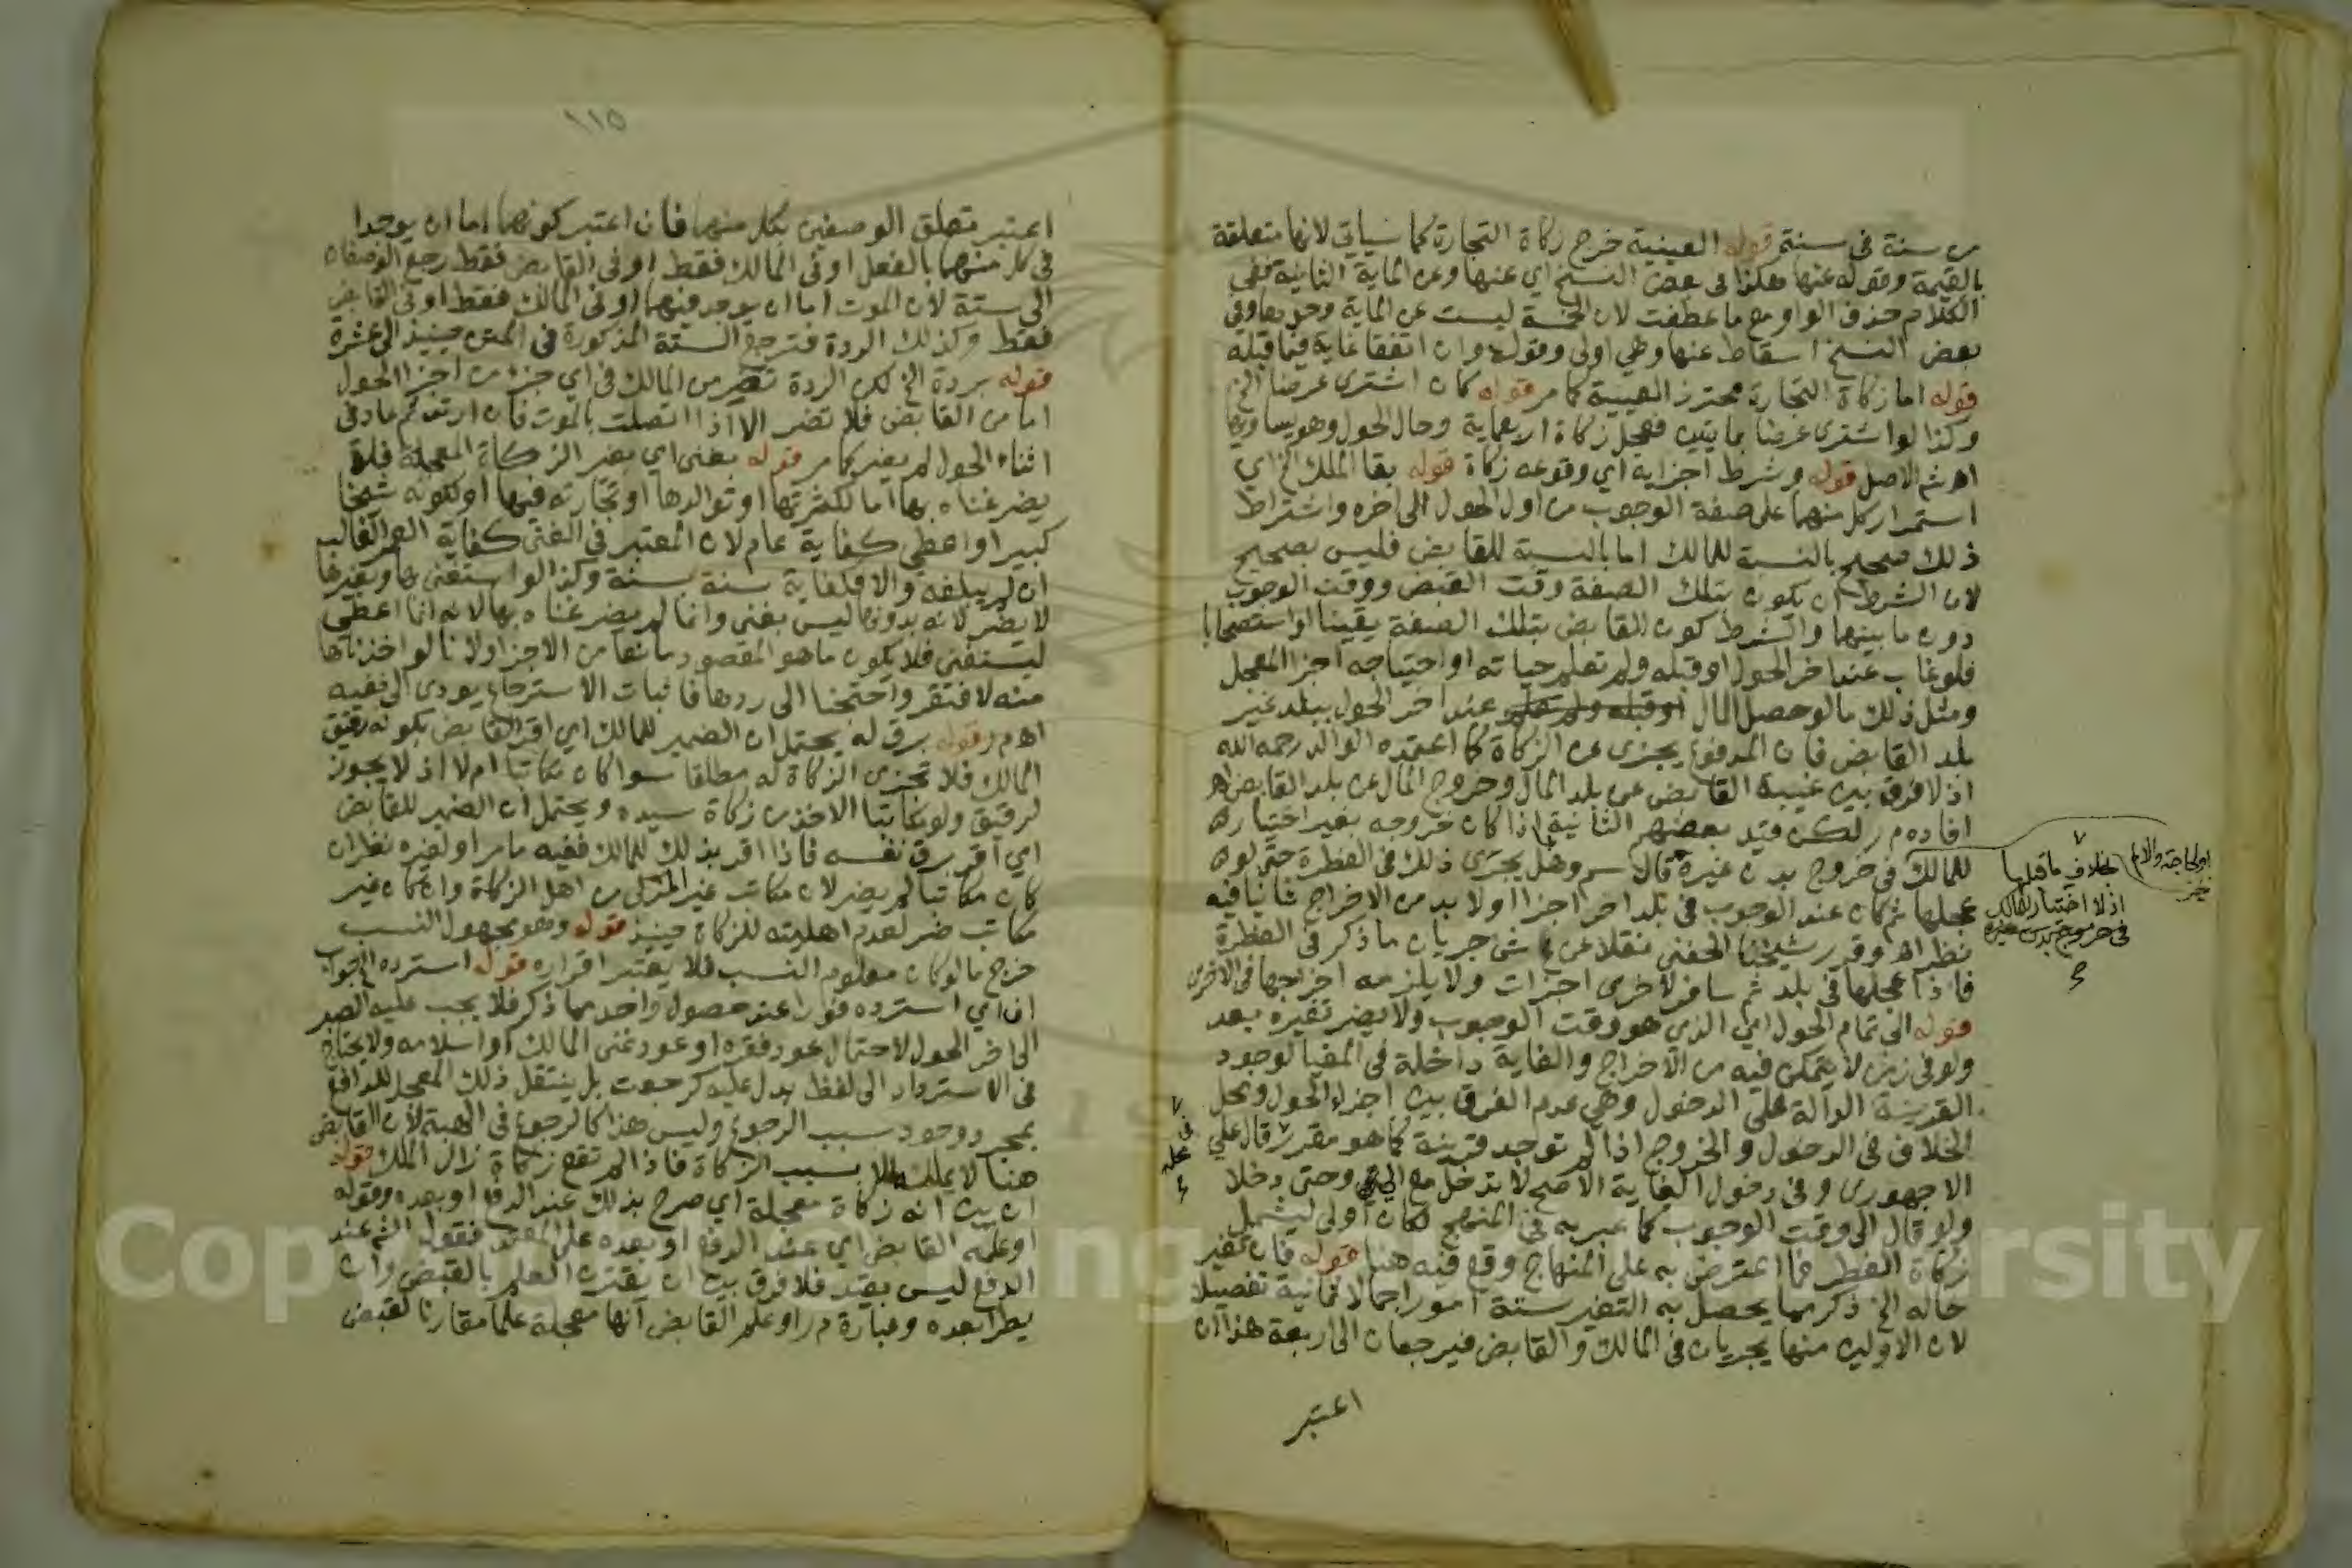 من سنة فى سنة قوله العينية خرج زكاة التجارة كما سياتى لانها متعلقة
بالقيمة وقوله عنها هكذا فى بعض النسخ اى عنها وعن الماية الثانية ففى
الكلام حذف الواو مع ما عطفت لان الخمسة ليست عن الماية وحدها وفى
بعض النسخ اسقاط عنها وهى اولى وقوله وان اتفقا غاية فيما قبله
قوله اما زكاة التجارة محترز العينية كما مر قوله كان اشترى عرضا الخ
وكذا لو اشترى عرضا بمايتين فعجل زكاة اربعماية وحال الحول وهو يساويها
اه شم الاصل قوله وشرط اجزايه اي وقوعه زكاة قوله بقا الملك الخ اى
استمرار كل منهما على صفة الوجوب من اول الحول الى اخره واشتراط
ذلك صحيح بالنسبة للمالك اما بالنسبة للقابض فليس بصحيح
لان الشرط ان يكون بتلك الصفة وقت القبض ووقت الوجوب
دون ما بينهما والشرط كون القابض بتلك الصفة يقينا او استصحابا
فلو غاب عند اخر الحول او قبله ولم تعلم حياته او احتياجه اجزا المعجل
ومثل ذلك ما لو حصل المال او قبله ولم تعلم عند اخر الحول ببلد غير
بلد القابض فان المدفوع يجزى عن الزكاة كما اعتمده الوالد رحمه الله
اذ لا فرق بين غيبة القابض عن بلد المال وخروج المال عن بلد القابض اه
افاده م ر لكن قيد بعضهم الثانية اذا كان خروجه بغير اختياره
للمالك فى خروج بدن غيره قال سم وهل يجزى ذلك فى الفطرة حتى لو
عجلها ثم كان عند الوجوب فى بلد اخر اجزا او لا بد من الاخراج ثانيا فيه
نظر اه وقرر شيخنا الحفنى نقلا عن ع ش جريان ما ذكر فى الفطرة
فاذا عجلها فى بلد ثم سافر لاخرى اجزات ولا يلزمه اخراجها فى الاخرى
قوله الى تمام الحول اى الذى هو وقت الوجوب ولا يضر تغيره بعد
ولو فى زمن لا يتمكن فيه من الاخراج والغاية داخلة فى المغيا لوجود
القرينة الدالة على الدخول وهى عدم الفرق بين اجزاء الحول ومحل
الخلاف فى الدخول والخروج اذا لم توجد قرينة كما هو مقرر قال على
الاجهورى وفى دخول الغاية الاصح لا تدخل مع الى وحتى دخلا
ولو قال الى وقت الوجوب كما عبر به فى المنهج لكان اولى ليشمل
زكاة الفطر فما اعترض به على المنهاج وقع فيه هنا قوله فان تغير
حاله الخ ذكر مما يحصل به التغير ستة امور اجمالا ثمانية تفصيلا
لان الاولين منها يجريان فى المالك والقابض فيرجعان الى اربعة هذا ان
اعتبر
بخلاف ما قبلها
اذ لا اختيار للمالك
فى خروج بدن غيره
١١٥
اعتبر متعلق الوصفين بكل منهما فان اعتبر كونهما اما ان يوجدا
فى كل منهما بالفعل او فى المالك فقط او فى القابض فقط رجع الوصفان
الى ستة لان الموت اما ان يوجد فيهما او فى المالك فقط او فى القابض
فقط وكذلك الردة فترجع الستة المذكورة فى المتن حينئذ الى عشرة
قوله بردة الخ لكن الردة تضر من المالك فى اي جزء من اجزا الحول
اما من القابض فلا تضر الا اذا اتصلت بالموت فان ارتد ثم عاد فى
اثناء الحول لم يضر كما مر قوله بغنى اى بغير الزكاة المعجلة فلا
يضر غناه بها اما لكثرتها او توالدها او تجارته فيها او لكونه شيخا
كبيرا واعطى كفاية عام لان المعتبر فى الغنى كفاية العمر الغالب
ان لم يبلغه والا فكفاية سنة بسنة وكذا لو استغنى بها وبغيرها
لا يضر لانه بدونها ليس بغنى وانما لم يضر غناه بها لانه انما اعطى
ليستغنى فلا يكون ما هو المقصود مانعا من الاجزا ولانا لو اخذناها
منه لافتقر واحتجنا الى ردها فاثبات الاسترجاع يودى الى نفيه
اه م ر قوله برق له يحتمل ان الضمير للمالك اى اقر القابض بكونه رقيق
المالك فلا تجزى الزكاة له مطلقا سوا كان مكاتبا ام لا اذ لا يجوز
لرقيق ولو مكاتبا الاخذ من زكاة سيده ويحتمل ان الضمير للقابض
اى اقر برق نفسه فاذا اقر بذلك للمالك ففيه ما مر او لغيره نظر ان
كان مكاتبا لم يضر لان مكاتب غير المزكى من اهل الزكاة وان كان غير
مكاتب ضر لعدم اهليته للزكاة حينئذ قوله وهو مجهول النسب
خرج ما لو كان معلوم النسب فلا يعتبر اقراره قوله استرده الخ جواب
ان اى استرده فورا عند حصول واحد مما ذكر فلا يجب عليه الصبر
الى اخر الحول لاحتمال عود فقره او عود غنى المالك او اسلامه ولا يحتاج
فى الاسترداد الى لفظ يدل عليه كرجعت بل ينتقل ذلك المعجل للدافع
بمجرد وجود سبب الرجوع وليس هذا كالرجوع فى الهبة لان القابض
هنا لا يملك الا بسبب الزكاة فاذا لم تقع زكاة زال الملك قوله
ان بين انه زكاة معجلة اى صرح بذلك عند الدفع او بعده وقوله
او علمه القابض اى عند الدفع او بعده على المعتمد فقول الشم عند
الدفع ليس بقيد فلا فرق بين ان يقترن العلم بالقبض وان
يطرا بعده وعبارة م ر او علم القابض انها معجلة علما مقارنا لقبض
Copyright © King Saud University